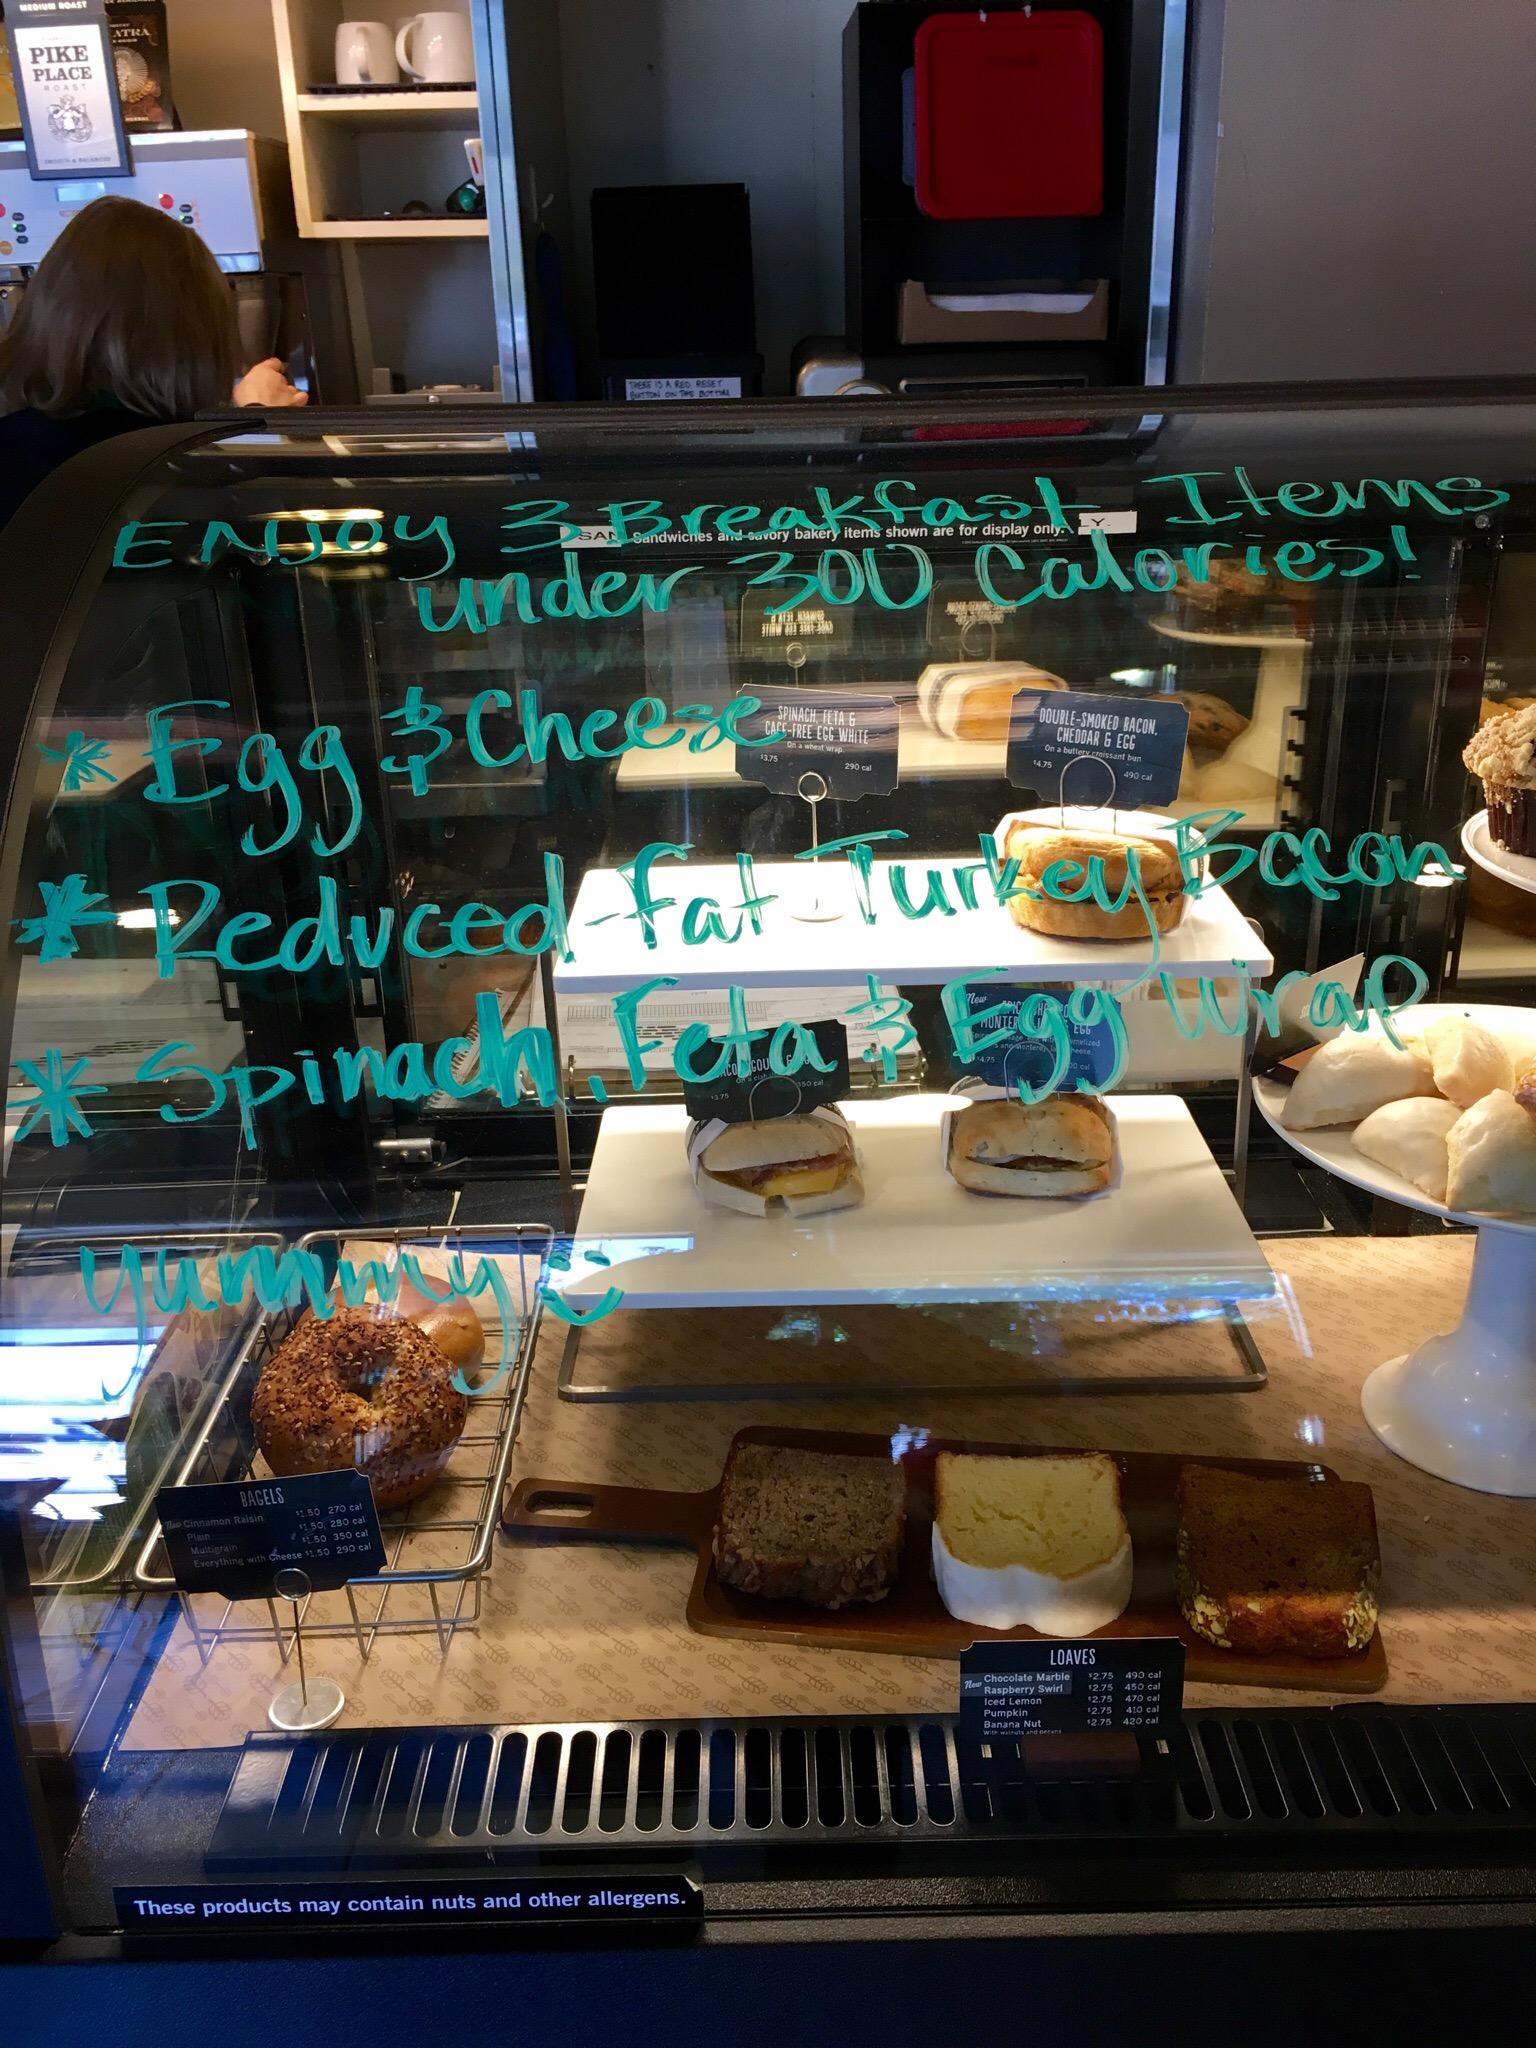 MEDIUM ROAST
PIKE
PLACE
ROAST
SMOOTH & BALANCED
THERE IS A RED RESET
BUTTON ON THE BOTTOM
ENJOY 3 Breakfast Items
Sandwiches and savory bakery items shown are for display only.
under 300 Calories!
* Egg & Cheese
SPINACH, FETA &
CAGE-FREE EGG WHITE
On a wheat wrap.
$3.75 290 cal
DOUBLE-SMOKED BACON,
CHEDDAR & EGG
On a buttery croissant bun
$4.75 490 cal
* Reduced-fat Turkey Bacon
* Spinach, Feta & Egg Wrap
New
$4.75
$3.75 350 cal
yummy :)
BAGELS
New Cinnamon Raisin $1.50 270 cal
Plain $1.50 280 cal
Multigrain $1.50 350 cal
Everything with Cheese $1.50 290 cal
LOAVES
New Chocolate Marble $2.75 490 cal
Raspberry Swirl $2.75 450 cal
Iced Lemon $2.75 470 cal
Pumpkin $2.75 410 cal
Banana Nut $2.75 420 cal
With walnuts and pecans
These products may contain nuts and other allergens.